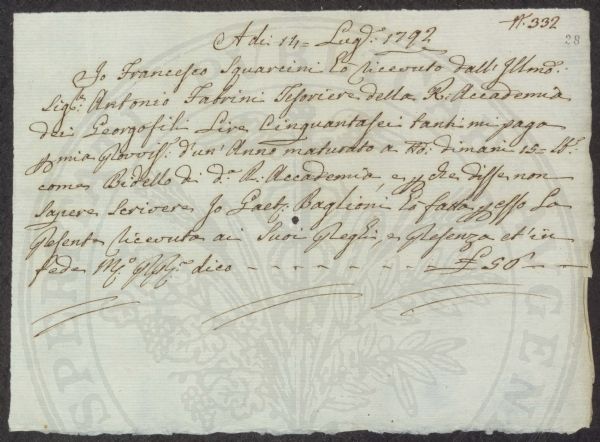 N. 332
28
A di 14 = Lug.o 1792
Io Francesco Squarcini ho ricevuto dall' Illmo:
Sig.r Antonio Fabrini Tesoriere della R. Accademia
dei Georgofili Lire Cinquantasei tanti mi paga
p mia Provvis.e d'un' Anno maturato a di
come Bidello di d.a R. Accademia, e p che disse non
sapere scrivere Io Gaet.o Baglioni ho fatta p esso la
presente ricevuta ai suoi preghi, e presenza et in
fede M.o P.P.a dico - - - - - - - - £ 56 - -
SPER
GENT